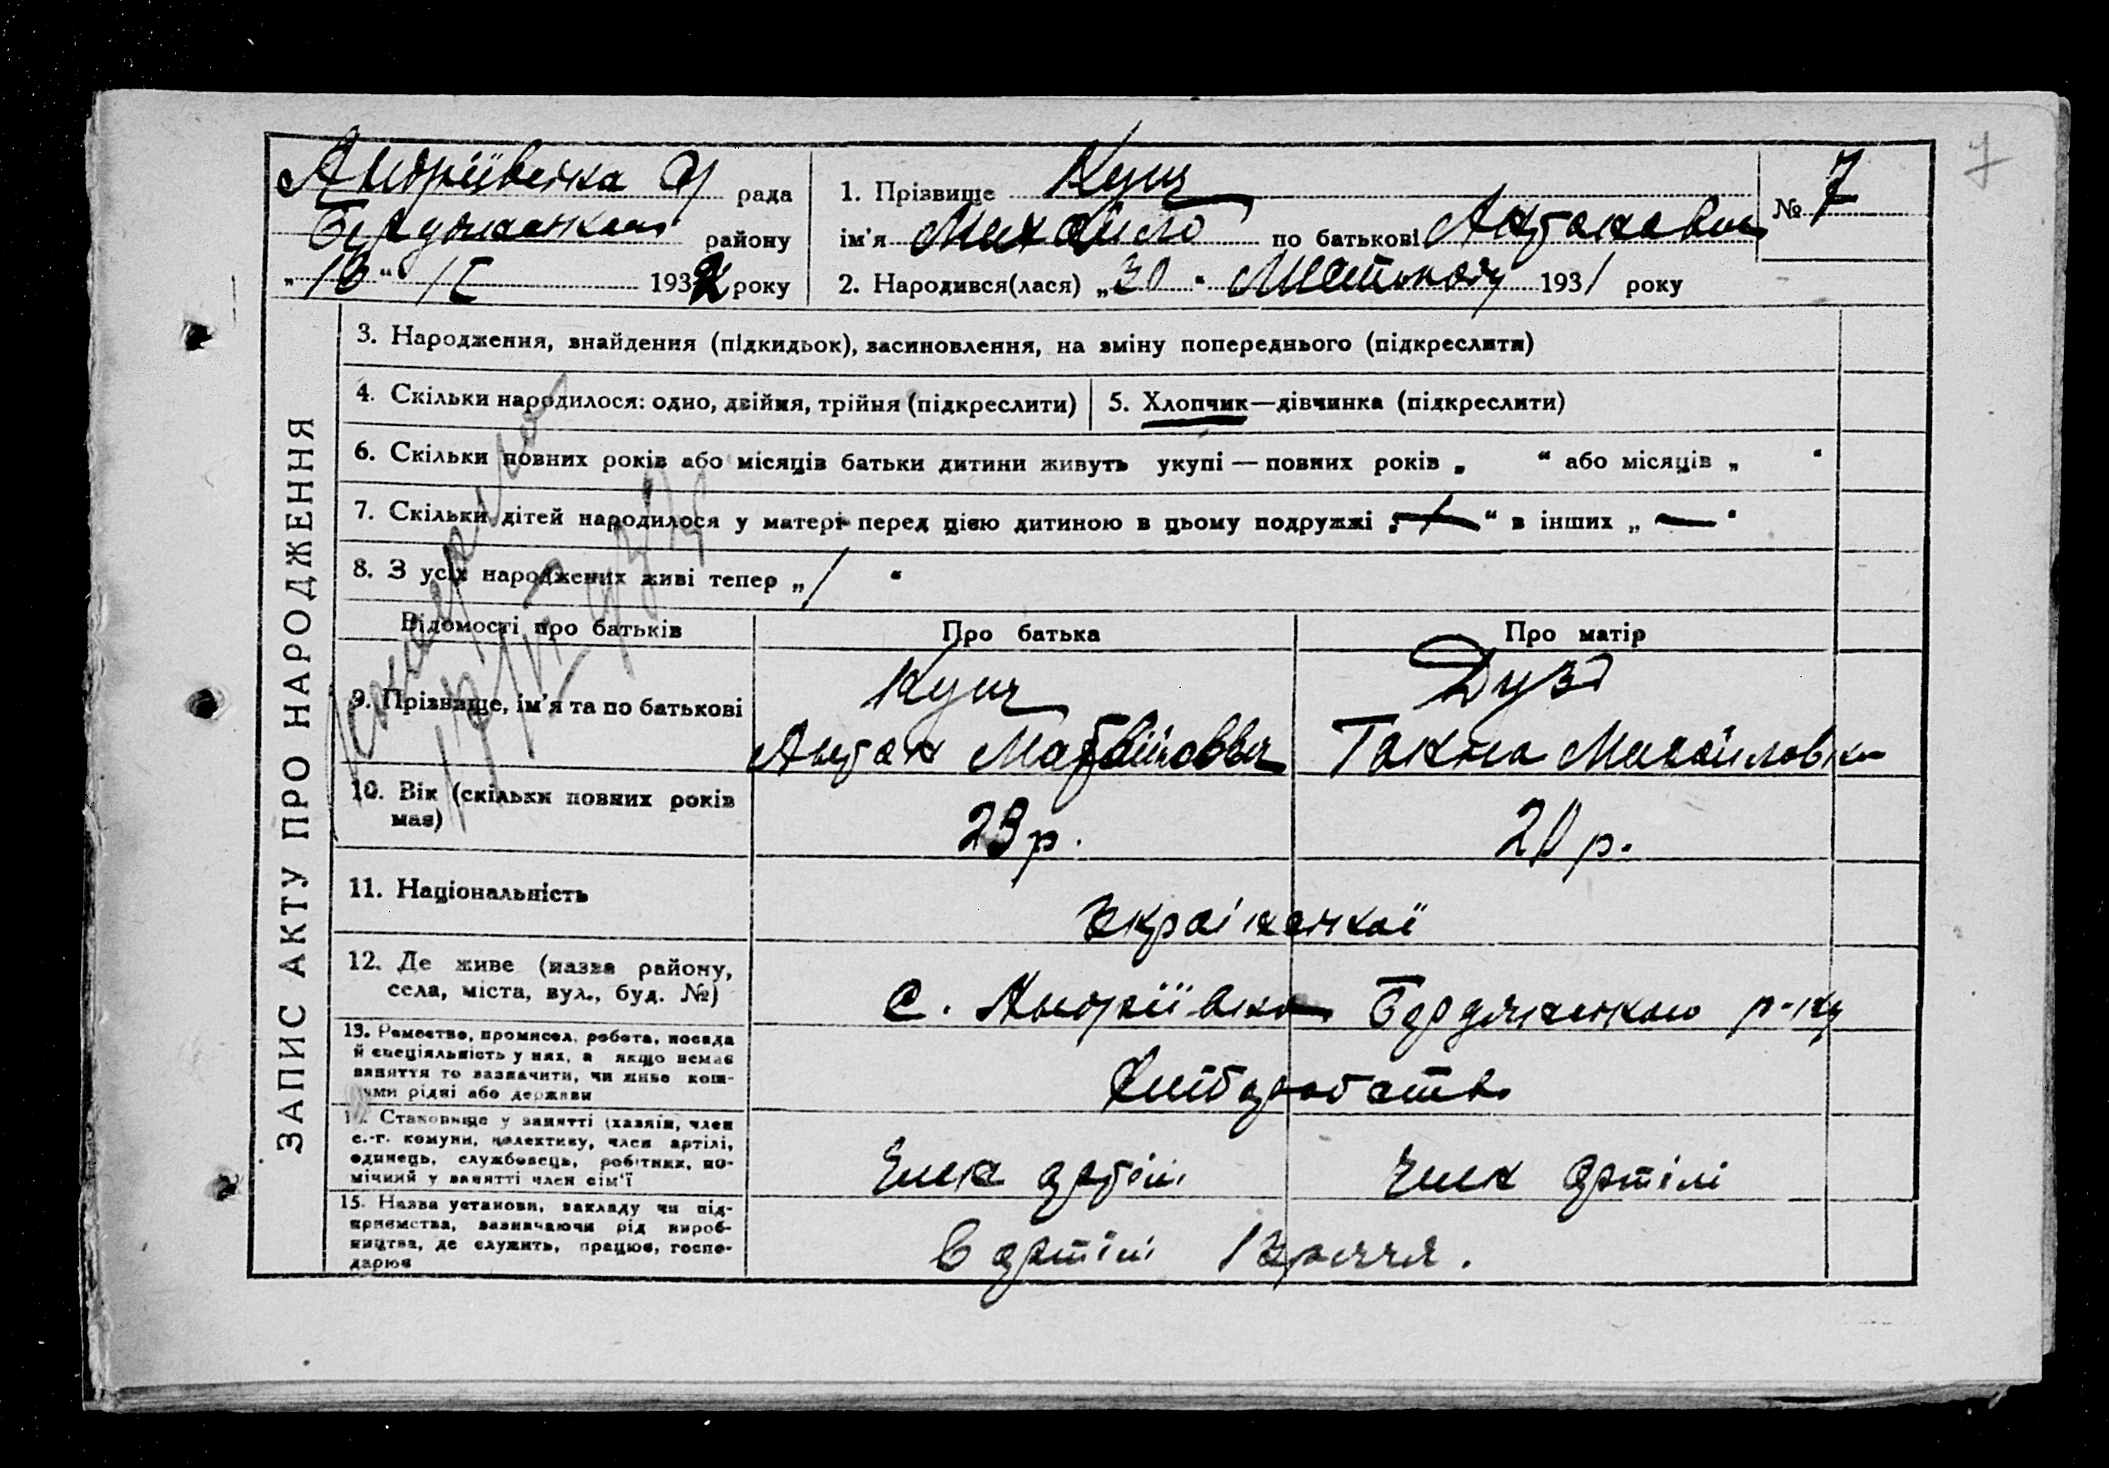 Андріївська с/ рада
Бердянського району
„13“ І 1932 року
1. Прізвище Куш
ім'я Михайло по батькові Антонович
№ 7
7
2. Народився(лася) „30“ Листопаду 1931 року
ЗАПИС АКТУ ПРО НАРОДЖЕННЯ
3. Народження, знайдення (підкидьок), засиновлення, на зміну попереднього (підкреслити)
4. Скільки народилося: одно, двійня, трійня (підкреслити)
5. Хлопчик—дівчинка (підкреслити)
6. Скільки повних років або місяців батьки дитини живуть укупі — повних років „ “ або місяців „ “
7. Скільки дітей народилося у матері перед цією дитиною в цьому подружжі „ “ в інших „—“
8. З усіх народжених живі тепер „1 “
Відомості про батьків
Про батька
Про матір
9. Прізвище, ім'я та по батькові
Куш
Антон Матвійович
Дузь
Михайловна
10. Вік (скільки повних років
має)
23 р.
20 р.
11. Національність
української
12. Де живе (назва району,
села, міста, вул., буд. №)
с. Андріївка Бердянського р-ну
13. Ремество, промисел, робота, посада
й спеціяльність у них, а якщо немає
заняття то зазначити, чи живе кош-
тами рідні або держави
Хліборобство
14. Становище у занятті (хазяїн, член
с.-г. комуни, колективу, член артілі,
одинець, службовець, робітник, по-
мічний у занятті член сім'ї
член артілі
член артілі
15. Назва установи, закладу чи під-
приємства, зазначаючи рід вироб-
ництва, де служить, працює, госпо-
дарює
в артілі